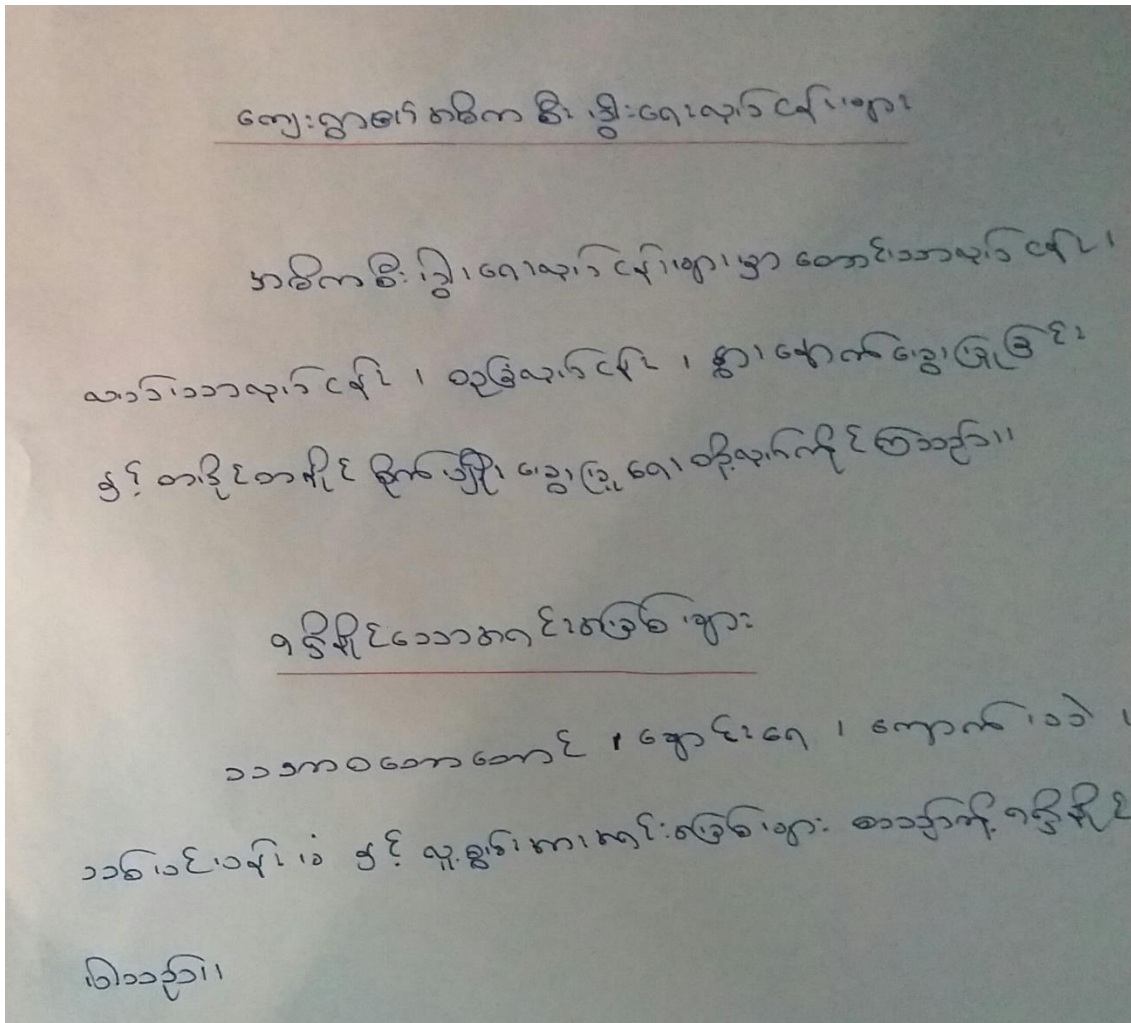 ကျေးရွာ၏ အဓိက စီးပွါးရေးလုပ်ငန်းများ
အဓိက စီးပွါးရေးလုပ်ငန်းများမှာ တောင်သာလုပ်ငန်း၊
လယ်သာလုပ်ငန်း၊ ဥယျာဉ်ခြံလုပ်ငန်း၊ နွား၊ နောက်မွေးမြူခြင်း
နှင့် တနိုင်တပိုင် စိုက်ပျိုး မွေးမြူရေး တို့လုပ်ကိုင်ကြသည်။
ရရှိနိုင်သောအရင်းအမြစ်များ
သဘာဝတောတောင်၊ ချောင်းရေ၊ ကျောက်၊ သဲ၊
သစ်ပင်ပန်းမံ နှင့် လူ့စွမ်းအားအရင်းအမြစ်များ စသည်တို့ ရရှိနိုင်
ပါသည်။